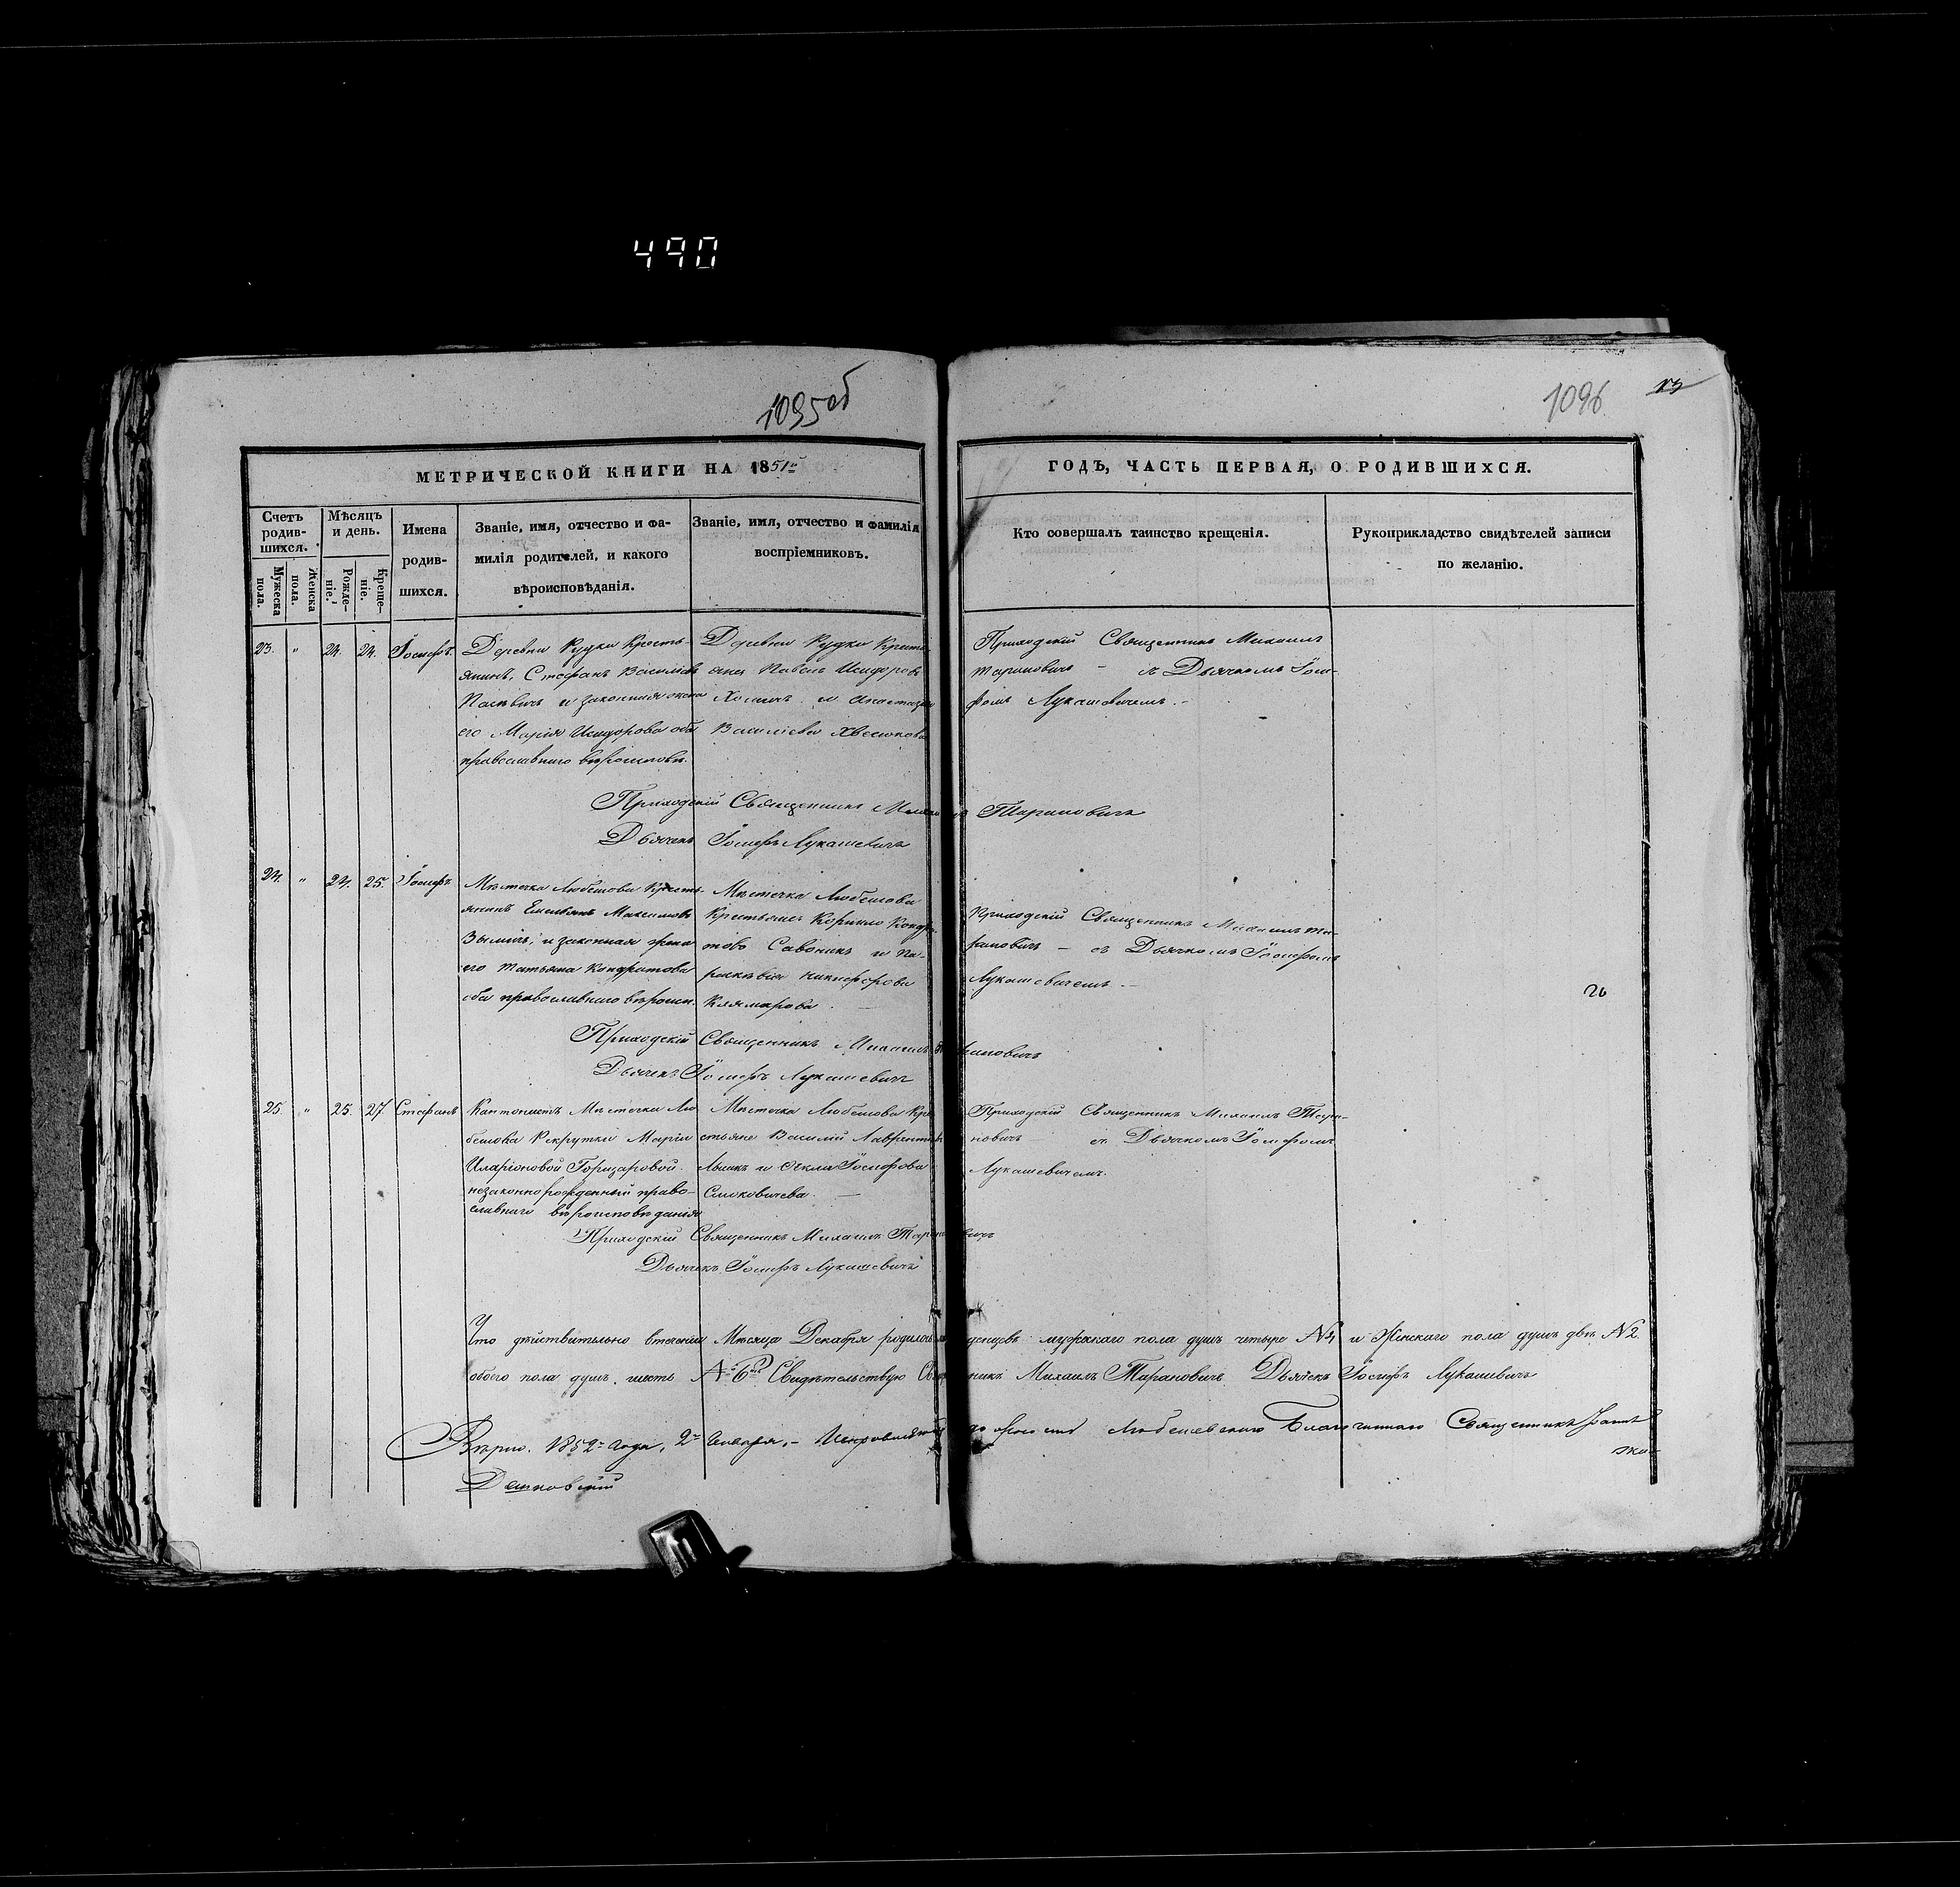 490
1095об
1096
МЕТРИЧЕСКОЙ КНИГИ НА 1851й
ГОДЪ, ЧАСТЬ ПЕРВАЯ, О РОДИВШИХСЯ.
Счетъ родив-шихся.
Мужеска пола.
Женска пола.
Мѣсяцъ и день.
Рожде-ніе.
Креще-ніе.
Имена
родив-
шихся.
Званіе, имя, отчество и фа-
милія родителей, и какого
вѣроисповѣданія.
Званіе, имя, отчество и фамилія
воспріемниковъ.
Кто совершалъ таинство крещенія.
Рукоприкладство свидѣтелей записи
по желанію.
23. " 24. 24. Іосифъ.
Деревни Рудки Кресть-
янинъ, Стефанъ Василіевъ
и законная жена
его Марія Исидорова оба
православнаго вѣроисповѣ.
Деревни Рудки Крестья
Павелъ Исидоровъ
и Анастасія
Василіева
Приходскій Священникъ Михаилъ
Тарановичъ - съ Дьячкомъ Іоси-
фомъ Лукашевичемъ. -
Приходскій Священникъ Михаилъ Тарановичъ
Дьячекъ Іосифъ Лукашевичъ
24. " 24. 25. Іосифъ
Мѣстечка Любешова Кресть-
янинъ Емельянъ Максимовъ
и законная жена
его Татьяна Кондратова
оба православнаго вѣроисп.
Мѣстечка Любешова
Крестьяне Корнило Кондра-
товъ Савоникъ и Па-
раскѣвія Никифорова
Приходскій Священникъ Михаилъ Та-
рановичъ - съ Дьячкомъ Іосифомъ
Лукашевичемъ. -
26
Приходскій Священникъ Михаилъ Тарановичъ
Дьячекъ Іосифъ Лукашевичъ
25. " 25. 27. Стефанъ
Кантонистъ Мѣстечка Лю-
бешова Рекрутки Маріи
Иларіоновой
незаконнорожденный право-
славнаго вѣроисповѣданія
Мѣстечка Любешова Кре-
стьяне Василій Лаврентіевъ
и Ѳекла Іосифова
Приходскій Священникъ Михаилъ Тара-
новичъ съ Дьячкомъ Іосифомъ
Лукашевичемъ.
Приходскій Священникъ Михаилъ Тарановичъ
Дьячекъ Іосифъ Лукашевичъ
Что дѣйствительно втеченіи Мѣсяца Декабря родилось младенцевъ мужскаго пола душъ четыре №4 и Женскаго пола душъ двѣ №2.
обоего пола душъ шесть № 6 Свидѣтельствую Священникъ Михаилъ Тарановичъ Дьячекъ Іосифъ Лукашевичъ
Вѣрно. 1852го Года, 2го Января. - Любешевскаго Благочиннаго Священникъ